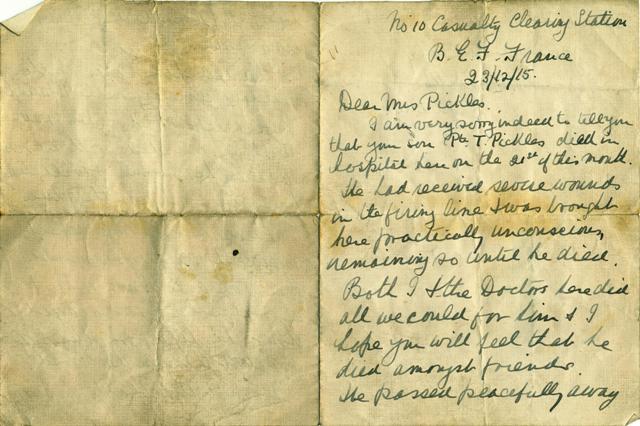 No 10 Casualty Clearing Station
B. E. F. France
23/12/15.
Dear Mrs Pickles.
I am very sorry indeed to tell you
that your son Pte T. Pickles died in
hospital here on the 21st of this month.
He had received severe wounds
in the firing line & was brought
here practically unconscious,
remaining so until he died.
Both I & the Doctors here did
all we could for him & I
hope you will feel that he
died amongst friends.
He passed peacefully away